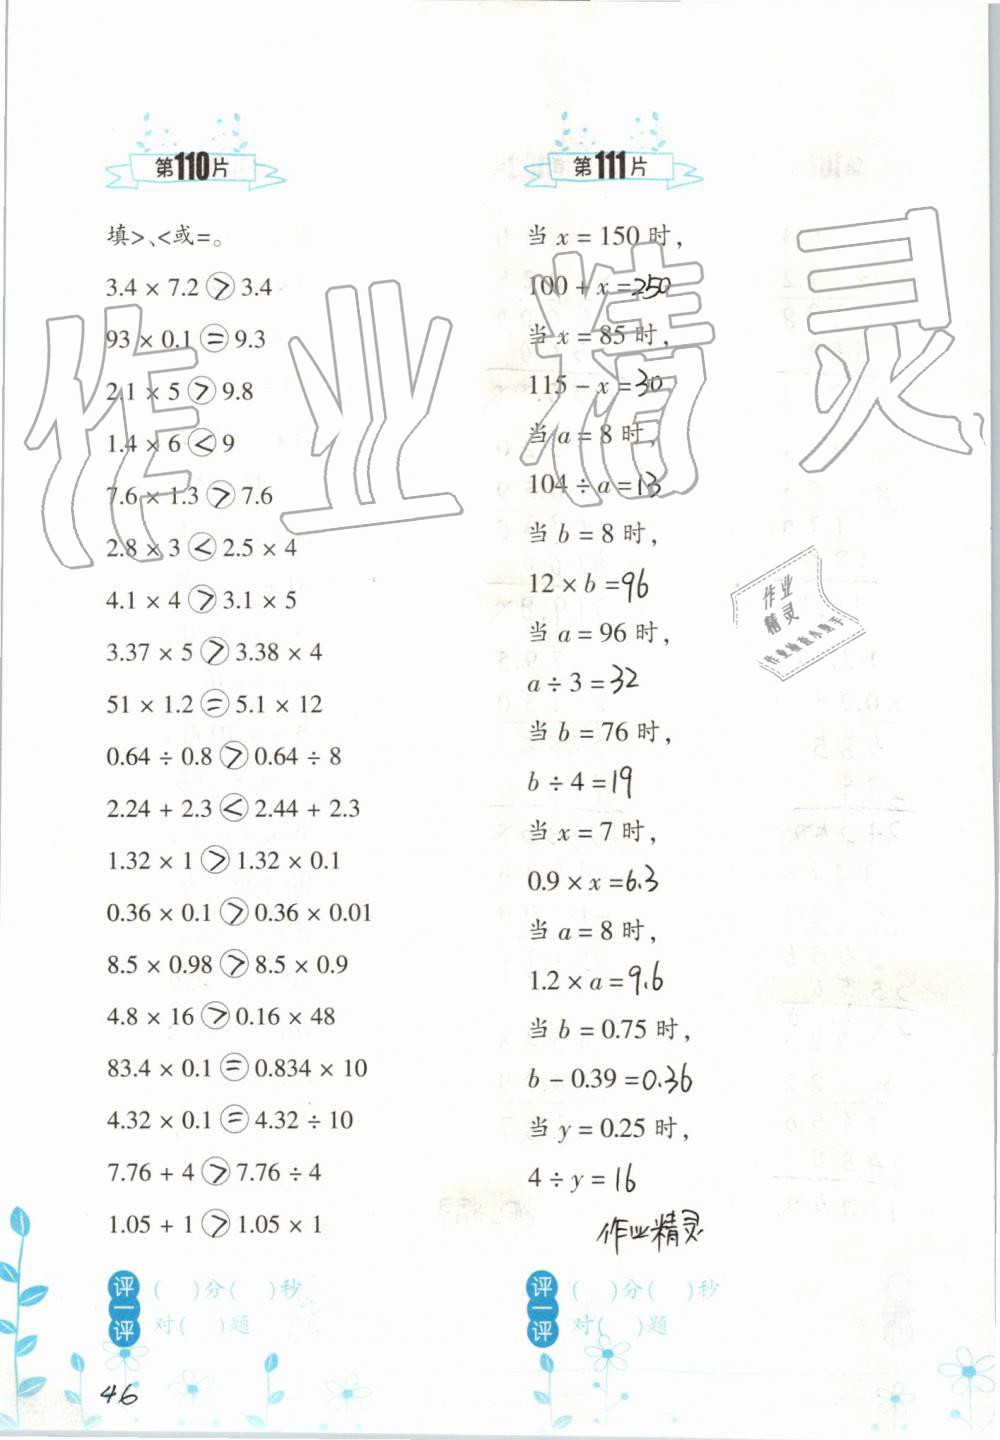 第110片
填>、<或=。
3.4 × 7.2 > 3.4
93 × 0.1 = 9.3
2.1 × 5 > 9.8
1.4 × 6 < 9
7.6 × 1.3 > 7.6
2.8 × 3 < 2.5 × 4
4.1 × 4 > 3.1 × 5
3.37 × 5 > 3.38 × 4
51 × 1.2 = 5.1 × 12
0.64 ÷ 0.8 > 0.64 ÷ 8
2.24 + 2.3 < 2.44 + 2.3
1.32 × 1 > 1.32 × 0.1
0.36 × 0.1 > 0.36 × 0.01
8.5 × 0.98 > 8.5 × 0.9
4.8 × 16 > 0.16 × 48
83.4 × 0.1 = 0.834 × 10
4.32 × 0.1 = 4.32 ÷ 10
7.76 + 4 > 7.76 ÷ 4
1.05 + 1 > 1.05 × 1
评一评
( )分( )秒
对( )题
46
第111片
当 x = 150 时，
100 + x =250
当 x = 85 时，
115 − x =30
当 a = 8 时，
104 ÷ a =13
当 b = 8 时，
12 × b =96
当 a = 96 时，
a ÷ 3 =32
当 b = 76 时，
b ÷ 4 =19
当 x = 7 时，
0.9 × x =6.3
当 a = 8 时，
1.2 × a =9.6
当 b = 0.75 时，
b − 0.39 =0.36
当 y = 0.25 时，
4 ÷ y = 16
作业精灵
评一评
( )分( )秒
对( )题
作业精灵
作业
精灵